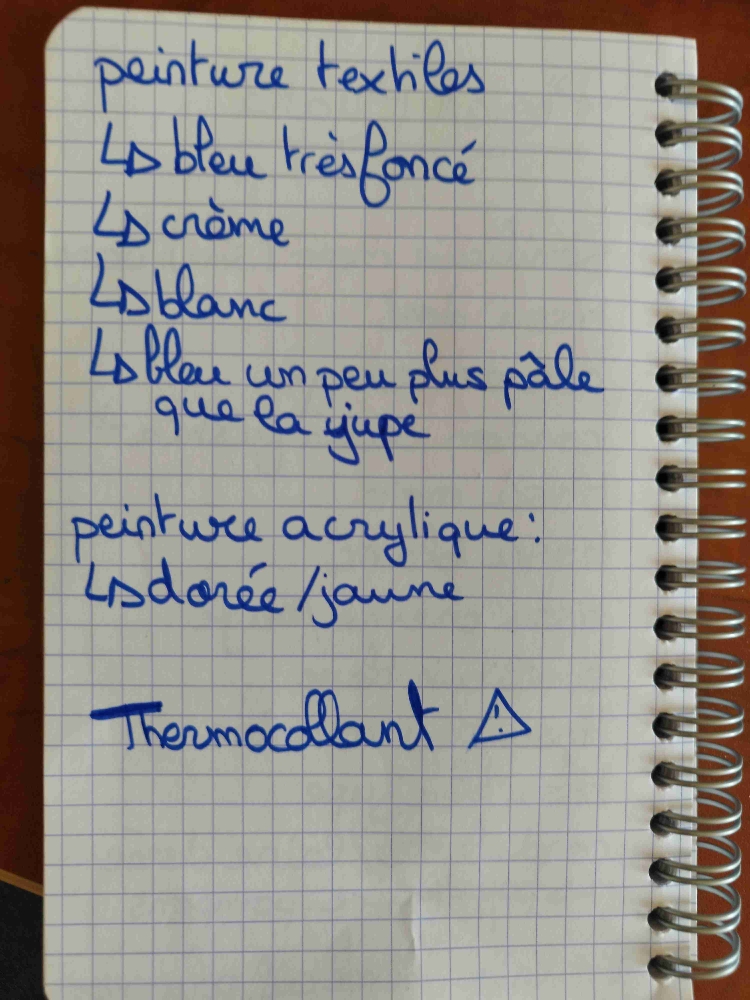 peinture textiles
↳ bleu très foncé
↳ crème
↳ blanc
↳ bleu un peu plus pâle
que la jupe
peinture acrylique :
↳ dorée / jaune
Thermocollant ⚠